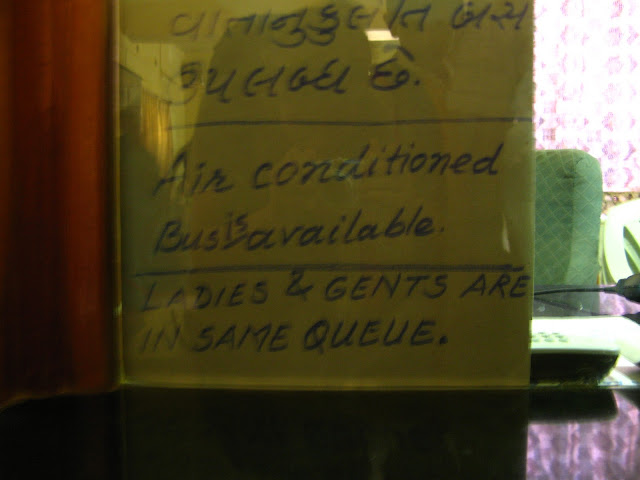 વાતાનુકુલીત બસ
ઉપલબ્ધ છે.
Air conditioned
Bus is available.
LADIES & GENTS ARE
IN SAME QUEUE.